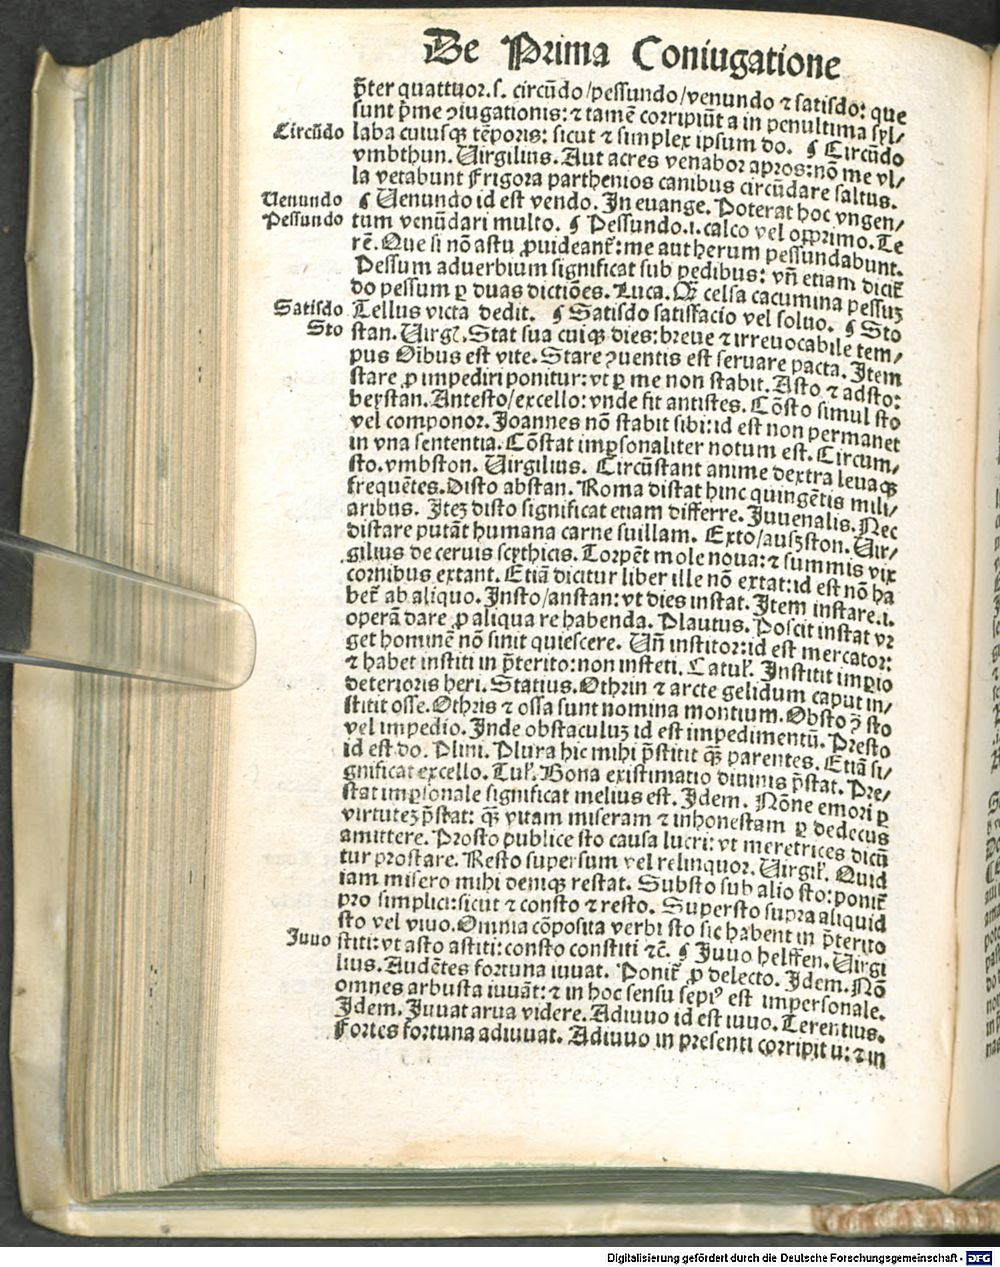 De Prima Coniugatione
p̄ter quattuor.ſ. circūdo/peſſundo/venundo ⁊ ſatiſdo: que
ſunt p̄me ꝯiugationis: ⁊ tamē corripiūt a in penultima ſyl/
Circūdo laba cuiuſqꝫ tēporis: ſicut ⁊ ſimplex ipſum do. ¶ Circūdo
vmbthun. Uirgilius. Aut acres venabor apros: nō me vl/
la vetabunt Frigora parthenios canibus circūdare ſaltus.
Uenundo ¶ Uenundo id eſt vendo. In euange. Poterat hoc vngen/
Peſſundo tum venūdari multo. ¶ Peſſundo.i. calco vel opprimo. Te
rē. Que ſi nō aſtu ꝓuideant̄: me aut herum peſſundabunt.
Peſſum aduerbium ſignificat ſub pedibus: vn̄ etiam dicit̄
do peſſum ꝑ duas dictiōes. Luca. Qꝫ celſa cacumina peſſuꝫ
Satiſdo Tellus victa dedit. ¶ Satiſdo ſatiſfacio vel ſoluo. ¶ Sto
Sto ſtan. Uirgl̄. Stat ſua cuiqꝫ dies: breue ⁊ irreuocabile tem/
pus Oībus eſt vite. Stare ꝯuentis eſt ſeruare pacta. Item
ſtare ꝓ impediri ponitur: vt ꝑ me non ſtabit. Aſto ⁊ adſto:
beyſtan. Anteſto/excello: vnde fit antiſtes. Cōſto ſimul ſto
vel componor. Joannes nō ſtabit ſibi: id eſt non permanet
in vna ſententia. Cōſtat imꝑſonaliter notum eſt. Circum/
ſto. vmbſton. Uirgilius. Circūſtant anime dextra leuaqꝫ
frequētes. Diſto abſtan. Roma diſtat hinc quingētis mili/
aribus. Iteꝫ diſto ſignificat etiam differre. Juuenalis. Nec
diſtare putāt humana carne ſuillam. Exto/auſzſton. Uir/
gilius de ceruis ſcythicis. Torpēt mole noua: ⁊ ſummis vix
cornibus extant. Etiā dicitur liber ille nō extat: id eſt nō ha
bet̄ ab aliquo. Inſto/anſtan: vt dies inſtat. Item inſtare.i.
operā dare ꝓ aliqua re habenda. Plautus. Poſcit inſtat vr
get hominē nō ſinit quieſcere. Un̄ inſtitor: id eſt mercator:
⁊ habet inſtiti in p̄terito: non inſteti. Catul̄. Inſtitit imꝑio
deterioris heri. Statius. Othrin ⁊ arcte gelidum caput in/
ſtitit oſſe. Othris ⁊ oſſa ſunt nomina montium. Obſto ꝯ̄ ſto
vel impedio. Inde obſtaculuꝫ id eſt impedimentū. Preſto
id eſt do. Plini. Plura hic mihi p̄ſtitit qꝫ parentes. Etiā ſi/
gnificat excello. Tul̄. Bona exiſtimatio diuitiis p̄ſtat. Pre/
ſtat imꝑſonale ſignificat melius eſt. Idem. Nōne emori ꝑ
virtuteꝫ p̄ſtat: qꝫ vitam miſeram ⁊ inhoneſtam ꝑ dedecus
amittere. Proſto publice ſto cauſa lucri: vt meretrices dicū
tur proſtare. Reſto ſuperſum vel relinquor. Uirgil̄. Quid
iam miſero mihi deniqꝫ reſtat. Subſto ſub alio ſto: ponit̄
pro ſimplici: ſicut ⁊ conſto ⁊ reſto. Superſto ſupra aliquid
ſto vel viuo. Omnia cōpoſita verbi ſto ſic habent in p̄terito
Juuo ſtiti: vt aſto aſtiti: conſto conſtiti ⁊c̄. ¶ Juuo helffen. Uirgi
lius. Audētes fortuna iuuat. Ponit̄ ꝓ delecto. Idem. Nō
omnes arbuſta iuuāt: ⁊ in hoc ſenſu ſepiꝰ eſt imperſonale.
Idem. Juuat arua videre. Adiuuo id eſt iuuo. Terentius.
Fortes fortuna adiuuat. Adiuuo in preſenti corripit u: ⁊ in
Digitalisierung gefördert durch die Deutsche Forschungsgemeinschaft - DFG